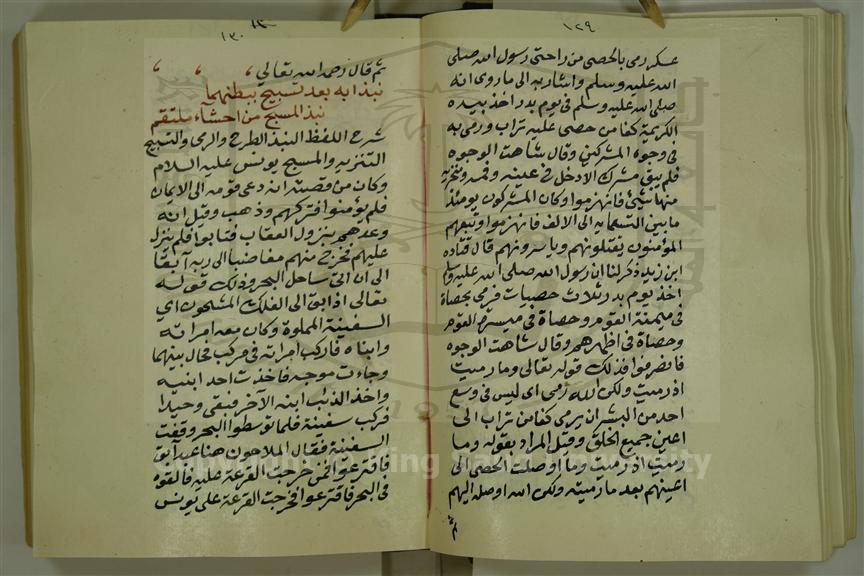 ١٢٩
عسكر رمي بالحصى من راحتي رسول الله صلى
الله عليه وسلم واشار به الى ما روى انه
صلى الله عليه وسلم في يوم بدر اخذ بيده
الكريمة كفا من حصى عليه تراب ورمى به
في وجوه المشركين وقال شاهت الوجوه
فلم يبق مشرك الا دخل في عينيه وفمه ومنخريه
منها شيئ فانهزموا وكان المشركون يومئذ
ما بين التسماية الى الالف فانهزموا وتبعهم
المؤمنون يقتلونهم وياسرونهم قال قتاده
ابن زيد ذكر لنا ان رسول الله صلى الله عليه وسلم
اخذ يوم بدر ثلاث حصيات فرمى بحصاة
في ميمنة القوم وحصاة في ميسرة القوم
وحصاة في اظهرهم وقال شاهت الوجوه
فانهزموا فذلك قوله تعالى وما رميت
اذ رميت ولكن الله رمى اي ليس في وسع
احد من البشر ان يرمى كفا من تراب الى
اعين جميع الخلق وقيل المراد بقوله وما
رميت اذ رميت وما اوصلت الحصى الى
اعينهم بعد ما رميته ولكن الله اوصله اليهم
ثم
١٣٠
ثم قال رحمه الله تعالى
نبذا به بعد تسبيح ببطنهما
نبذ المسبح من احشاء ملتقم
شرح اللفظ النبذ الطرح والرمى والتسبيح
التنزيه والمسبح يونس عليه السلام
وكان من قصته انه دعى قومه الى الايمان
فلم يؤمنوا فتركهم وذهب وقيل انه
وعدهم بنزول العقاب فتابوا فلم ينزل
عليهم فخرج منهم مغاضبا الى ربه آبقا
الى ان اتى ساحل البحر وذلك قوله
تعالى اذ ابق الى الفلك المشحون اي
السفينة المملوة وكان معه امراته
وابناه فاركب امراته في مركب فحال بينهما
وجاءت موجه فاخذت احد ابنيه
واخذ الذئب ابنه الآخر فبقى وحيدا
فركب سفينة فلما توسطوا البحر وقفت
السفينة فقال الملاحون هنا عبد آبق
فاقترعوا فمن خرجت القرعة عليه فالقوه
في البحر فاقترعوا فخرجت القرعة على يونس
Copyright © King Saud University